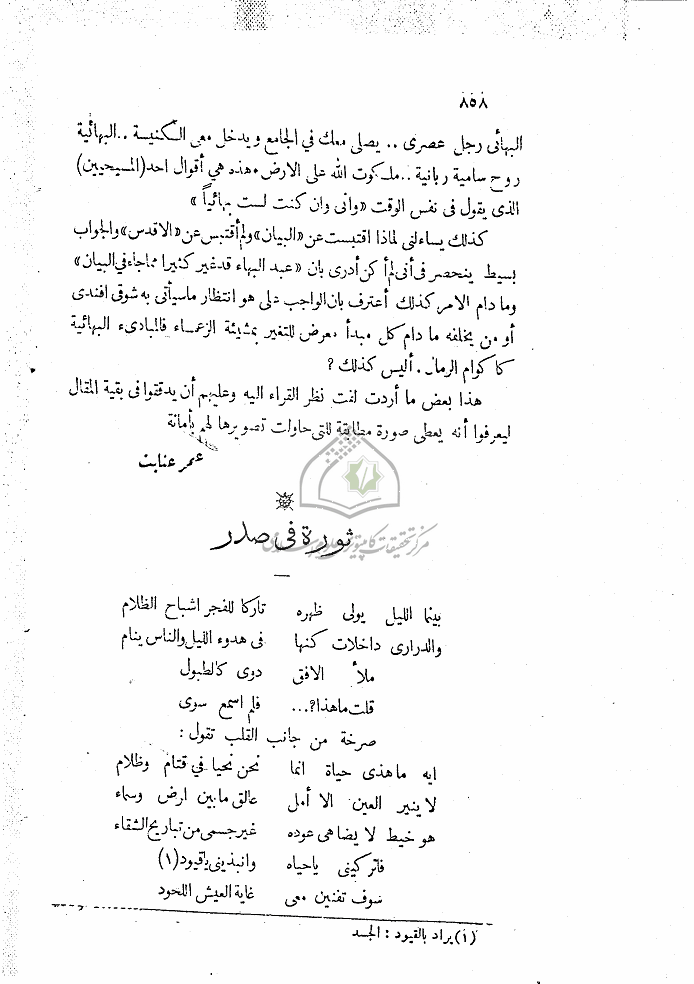 ٨٥٨
البهائى رجل عصرى .. يصلى معك في الجامع ويدخل معى الكنيسة .. البهائية
روح سامية ربانية .. ملكوت الله على الارض . هذه هي أقوال احد (المسيحيين)
الذى يقول فى نفس الوقت «وانى وان كنت لست بهائياً»
كذلك يساءلنى لماذا اقتبست عن «البيان» ولم أقتبس عن «الاقدس» والجواب
بسيط ينحصر فى أنى لم أكن أدرى بان «عبد البهاء قد غير كثيرا مما جاء في البيان»
وما دام الامر كذلك أعترف بان الواجب على هو انتظار ماسيأتى به شوقى افندى
أو من يخلفه ما دام كل مبدأ معرض للتغير بمشيئة الزعماء فالمبادىء البهائية
كاكوام الرمال . أليس كذلك ؟
هذا بعض ما أردت لفت نظر القراء اليه وعليهم أن يدققوا فى بقية المقال
ليعرفوا أنه يعطى صورة مطابقة للتى حاولت تصويرها لهم بأمانة
عمر عنايت
ثورة فى صدر
بينما الليل يولى ظهره تاركا للفجر اشباح الظلام
والدرارى داخلات كنها فى هدوء الليل والناس ينام
ملأ الافق دوى كالطبول
قلت ماهذا؟... فلم اسمع سوى
صرخة من جانب القلب تقول :
ايه ماهذى حياة انما نحن نحيا في قتام وظلام
لا ينير العين الا أمل عالق مابين ارض وسماء
هو خيط لا يضاهى عوده غير جسمى من تباريح الشقاء
فاتركينى ياحياه وانبذينى ياقيود (١)
سوف تفنين معى غاية العيش اللحود
(١) يراد بالقيود : الجسد
مركز تحقيقات كامپيوترى علوم اسلامى